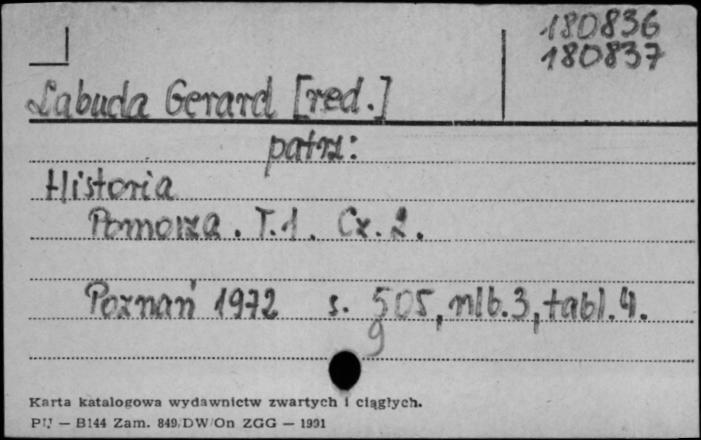 180836
180837
Labuda Gerard [red.]
patrz:
Historia
Pomorza. T.1. Cz. 2.
Poznań 1972 s. 505, nlb. 3, tabl. 4.
9
Karta katalogowa wydawnictw zwartych i ciągłych.
PU — B144 Zam. 849/DW/On ZGG — 1991